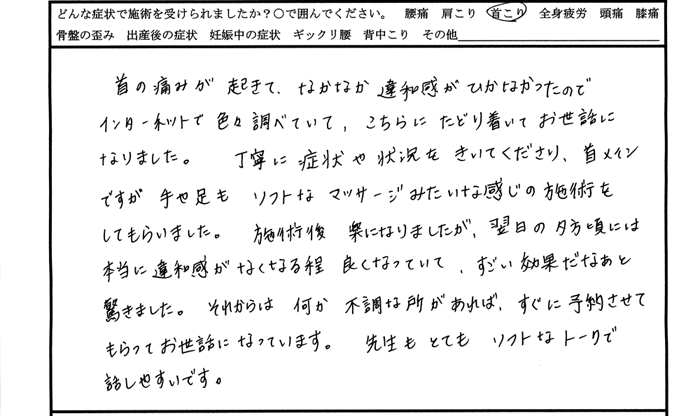 どんな症状で施術を受けられましたか？〇で囲んでください。　腰痛　肩こり　首こり　全身疲労　頭痛　膝痛
骨盤の歪み　出産後の症状　妊娠中の症状　ギックリ腰　背中こり　その他
首の痛みが 起きて、なかなか 違和感が ひかなかったので
インターネットで 色々調べていて、こちらに たどり着いて お世話に
なりました。 丁寧に 症状や 状況を きいてくださり、首メイン
ですが 手や足も ソフトな マッサージみたいな感じの 施術を
してもらいました。 施術後 楽になりましたが、翌日の 夕方頃には
本当に 違和感が なくなる程 良くなっていて、すごい 効果だなぁと
驚きました。 それからは 何か 不調な所があれば、すぐに予約させて
もらって お世話に なっています。 先生も とても ソフトなトークで
話しやすいです。